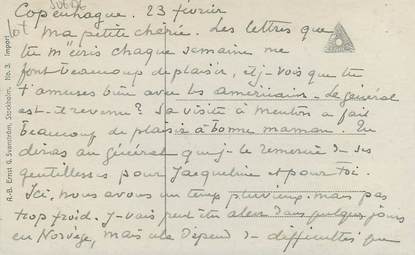 SUEDE
Copenhague. 23 février
ma petite chérie. Les lettres que
tu m'écris chaque semaine me
font beaucoup de plaisir, et j-vois que tu
t'amuses bien avec les américains - le général
est-il revenu? Sa visite à menton a fait
beaucoup de plaisir à bonne maman. Tu
diras au général que j-le remercie d- ses
gentillesses pour Jacqueline et pour toi.
Ici, nous avons un temps pluvieux. mais pas
trop froid. J-vais peut être aller dans quelques jours
en Norvège, mais cela dépend d- difficultés que
A.-B. Ernst G. Svanström, Stockholm. No. 3. Import